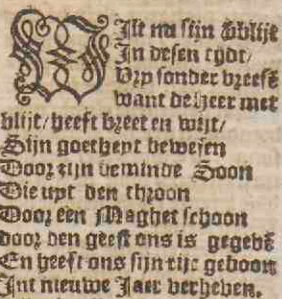 WIlt nu sijn v̄blijt
In desen tydt/
Vry sonder vreesē
want de heer met
blijt/heeft breet en wijt/
Sijn goetheyt bewesen
Door zijn beminde Soon
Die uyt den throon
Door een Maghet schoon
door den geest ons is gegebē
En heeft ons sijn rijc geboon
Int nieuwe Jaer verheven.